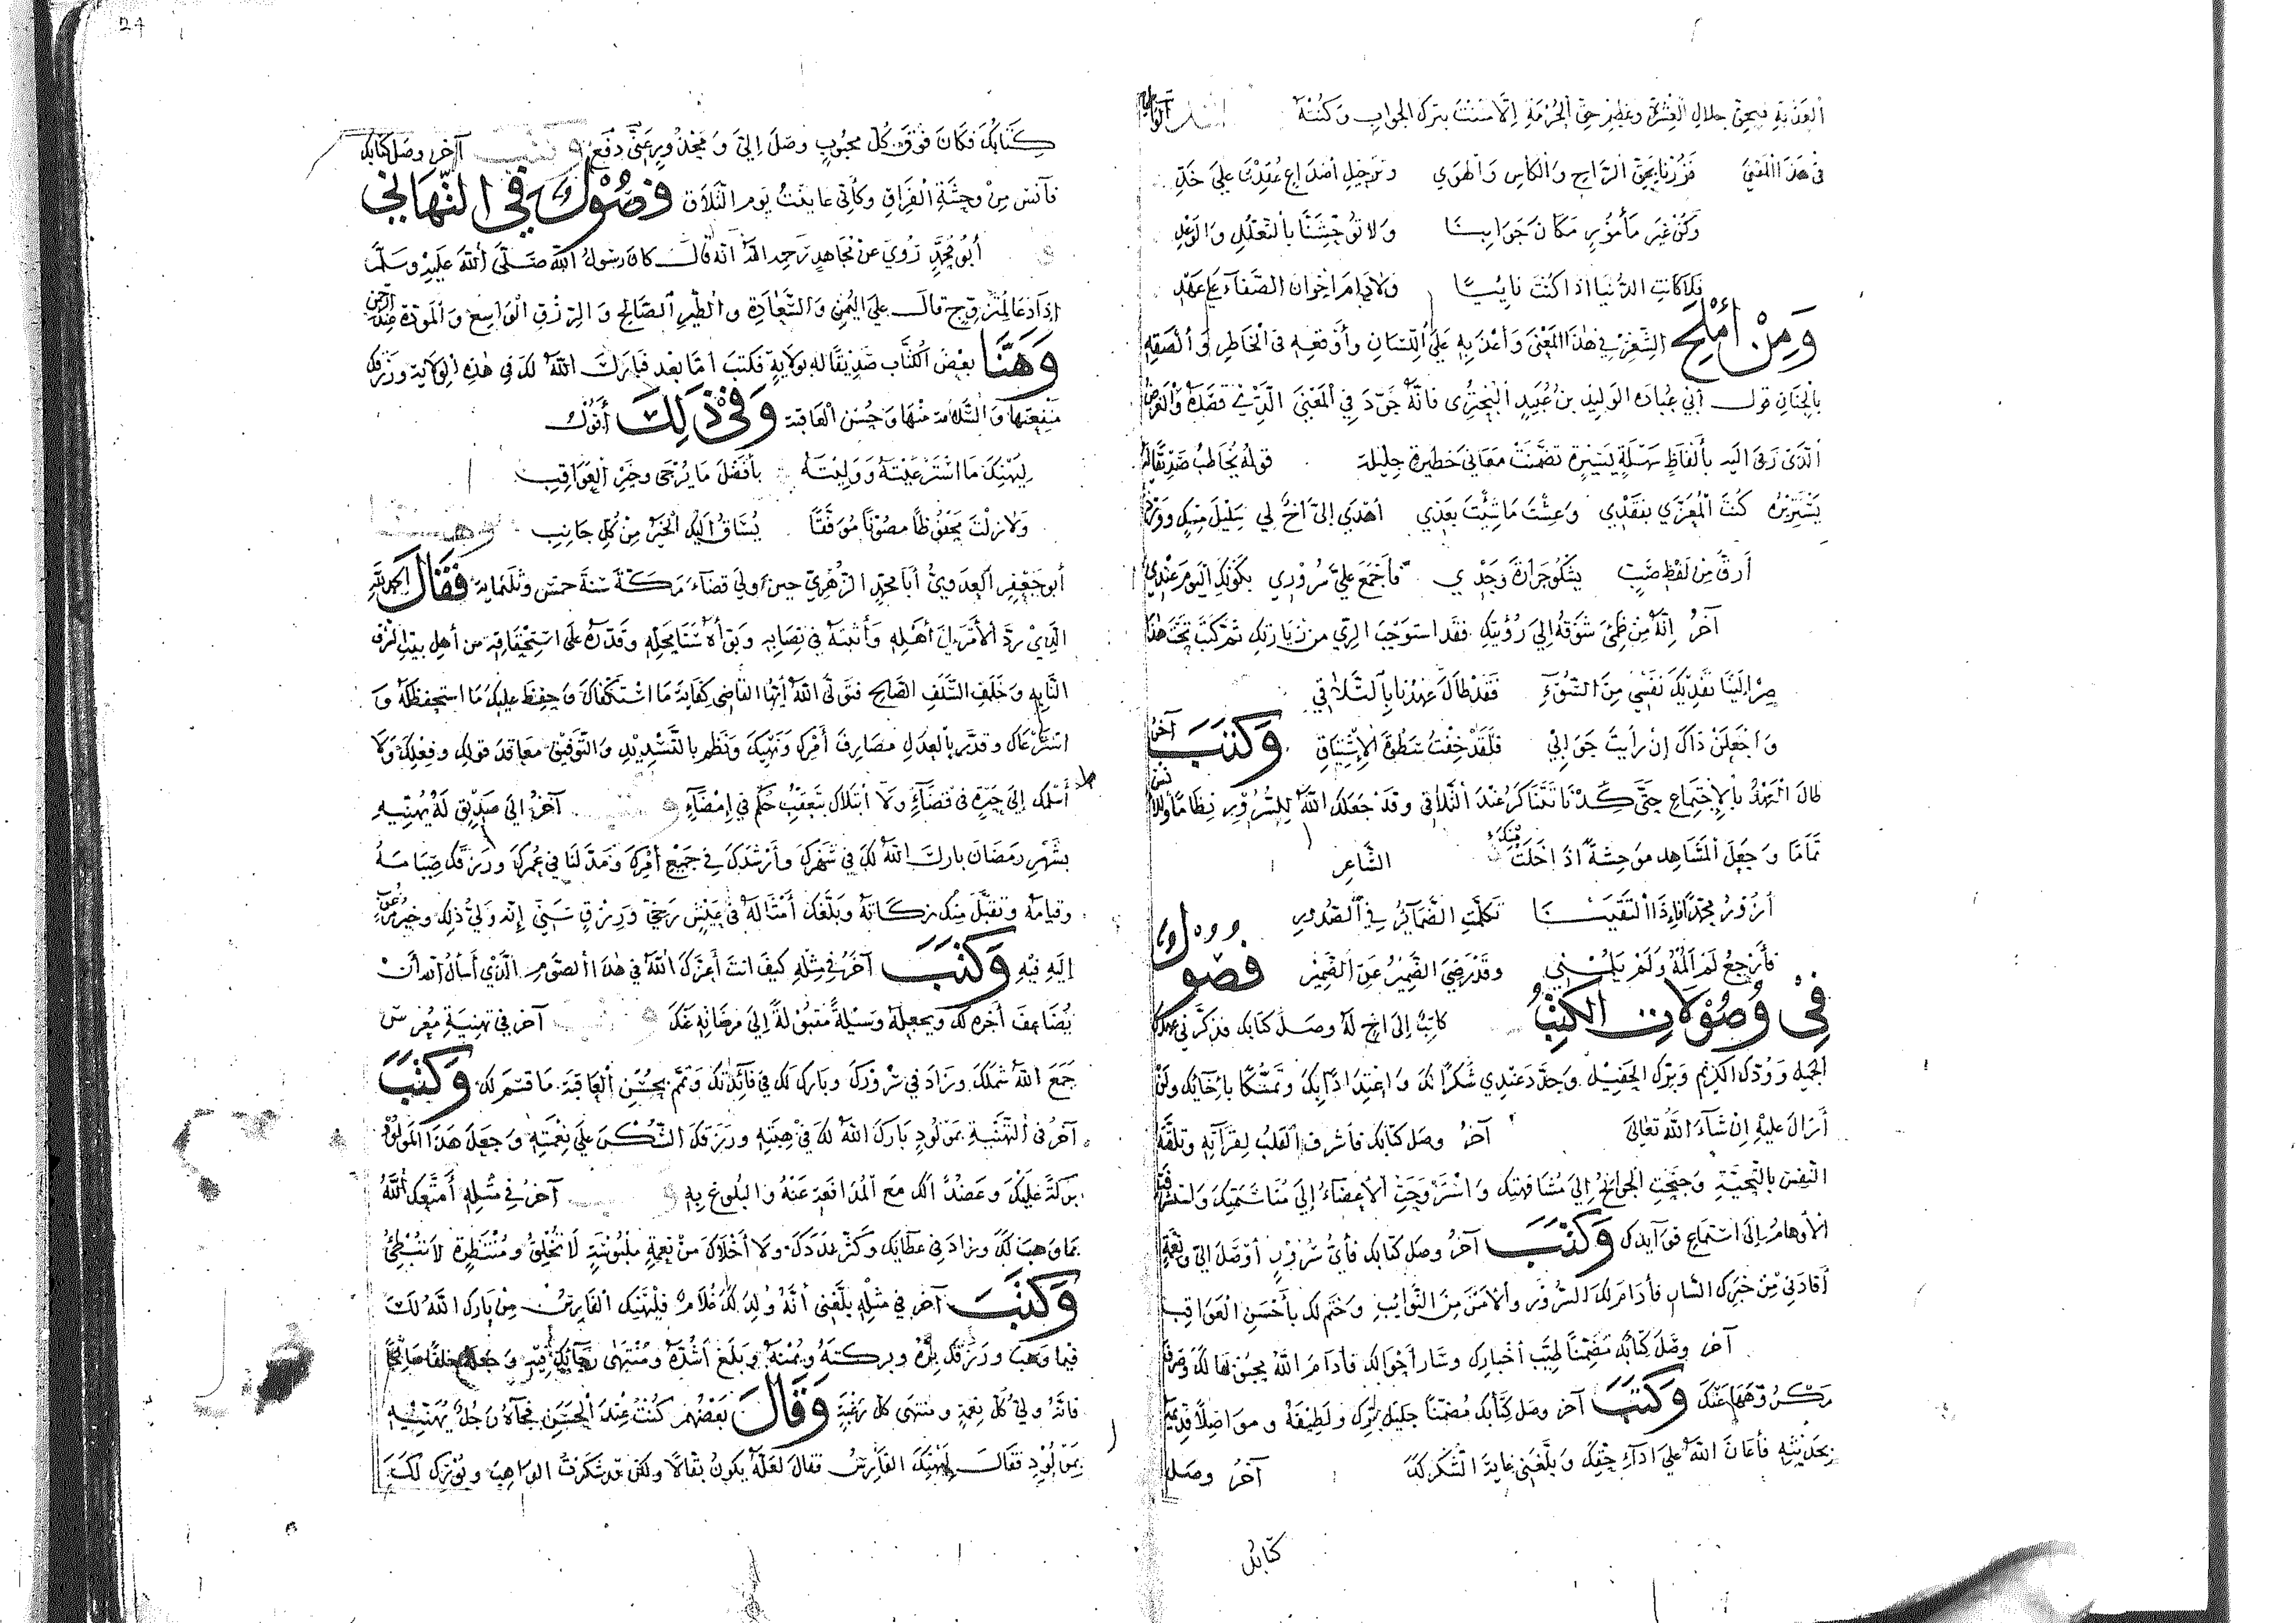 العذبة فبحق جلال العشرة وعظيم حق الحرمة إلا مننت بترك الجواب وكنت
في هذا المعنى فزرنا بحق الراح والكاس والهوى وترجيل اصداغ عقدن على خد
وكن غير مأمور مكان جوابنا ولا توحشنا بالتعلل والوعد
فلا كانت الدنيا اذا كنت نائيا ولا دام اخوان الصفاء على عهد
ومن أملح الشعر في هذا المعنى وأعذبه على اللسان وأوقعه في الخاطر وألصقه
بالجنان قول أبي عبادة الوليد بن عبيد البحتري فانه جود في المعنى الذي قصده والغرض
الذي رمى اليه بألفاظ سهلة يسيرة تضمنت معاني خطيرة جليلة قوله يخاطب صديقا له
يستزيره كنت المعزى بفقدي وعشت ما شئت بعدي أهدى إلي أخ لي سليل مسك وورد
أرق من لفظ صب يشكو حرارة وجد فاجمع علي سروري بكونك اليوم عندي
آخر إنه من ظمئ شوقه إلى رؤيتك فقد استوجب الري من زيارتك ثم كتب تحت هذا
سر إلينا تفديك نفسي من السوء فقد طال عهدنا بالتلاقي
واجعلن ذاك إن رأيت جوابي فلقد خفت سطوة الإشتياق وكتب آخر
طال العهد بالإجتماع حتى كدنا نتناكر عند التلاقي وقد جعلك الله للسرور نظاما وللأنس
تماما وجعل المشاهد موحشة اذا خلت منك الشاعر
أزور محمدا فإذا التقينا تكلمت الضمائر في الصدور
فأرجع لم ألمه ولم يلمني وقد رضي الضمير عن الضمير فصول
في وصولات الكتب كاتب إلى اخ له وصل كتابك فذكرني عهدك
الجميل وودك الكريم وبرك الحفيل وجدد عندي شكرا لك واعتدادا بك وتمسكا بإخائك ولن
أزال عليه إن شاء الله تعالى آخر وصل كتابك فأشرف القلب لقراءته وتلقته
النفس بالتحية وجنحت الجوانح إلى مشافهتك واستروحت الأعضاء إلى مناسمتك
الأوهام إلى استماع فوايدك وكتب آخر وصل كتابك فأي سرور أوصل الي ونعمة
أفادني من خبرك السار فأدام لك السرور والأمن من النوايب وختم لك بأحسن العواقب
آخر وصل كتابك متضمنا طيب أخبارك وسار أحوالك فأدام الله محبوبها لك وصرف
مكروهها عنك وكتب آخر وصل كتابك مضمنا جليل برك ولطيفه ومواصلا قديمه
بحديثه فأعان الله على اداء حقك وبلغني غاية الشكر لك آخر وصل
كتابك
24
كتابك فكان فوق كل محبوب وصل إلي ومحذور عني دفع وكتب آخر وصل كتابك
فآنس من وحشة الفراق وكأني عاينت يوم التلاق فصول في التهاني
أبو محمد روي عن مجاهد رحمه الله أنه قال كان رسول الله صلى الله عليه وسلم
إذا دعا لمتزوج قال على اليمن والسعادة والطير الصالح والرزق الواسع والمودة عند
وهنا بعض الكتاب صديقا له بولاية فكتب أما بعد فبارك الله لك في هذه الولاية ورزقك
منفعتها والسلامة منها وحسن العاقبة وفي ذلك أقول
ليهنك ما استرعيته ووليته بأفضل ما يرجى وخير العواقب
ولا زلت محفوظا مصونا موفقا يساق اليك الخير من كل جانب وهنا
أبو جعفر العدوي أبا محمد الزهري حين ولي قضاء مكة سنة خمس وثلثمائة فقال الحمد لله
الذي رد الأمر الى أهله وأثبته في نصابه وبوأه سنا محله وقدره على استحقاقه من أهل بيت الشرف
النابه وخلف السلف الصالح فتولى الله أيها القاضي كفاية ما استكفاك وحفظ عليك ما استحفظك و
استرعاك وقدر بالعدل مصارف أمرك ونهيك ونظم بالتسديد والتوفيق معاقد قولك وفعلك ولا
أسلمك إلى حيرة في قضاء ولا ابتلاك بتعقب حكم في إمضاء وكتب آخر الى صديق له يهنيه
بشهر رمضان بارك الله لك في شهرك وأرشدك في جميع أمرك ومد لنا في عمرك ورزقك صيامه
وقيامه وتقبل منك زكاته وبلغك أمثاله في عيش رخي ورزق سني إنه ولي ذلك وخير مرغوب
إليه فيه وكتب آخر في مثله كيف انت أعزك الله في هذا الصوم الذي أسأل الله أن
يضاعف أجره لك ويجعله وسيلة مقبولة إلى مرضاته عنك وكتب آخر في تهنية معرس
جمع الله شملك وزاد في سرورك وبارك لك في فائدتك وتمم بحسن العاقبة ما قسم لك وكتب
آخر في التهنية بمولود بارك الله لك في هبته ورزقك الشكر على نعمته وجعل هذا المولود
بركة عليك وعضدا لك مع المدافعة عنه والبلوغ به وكتب آخر في مثله أمتعك الله
بما وهب لك وزاد في عطائك وكثر عددك ولا أخلاك من نعمة ملبوسة لا تخلق ومنتظرة لا تبطئ
وكتب آخر في مثله بلغني أنه ولد لك غلام فليهنك الفارس من بارك الله لك
فيما وهب ورزقك بره وبركته ويمنه وبلغ أشده ومنتهى رجائك فيه وجعله خلفا صالحا
فانه ولي كل نعمة ومنتهى كل رغبة وقال بعضهم كنت عند الحسن فجاءه رجل يهنيه
بمولود فقال ليهنك الفارس فقال لعله يكون بقالا ولكن قد شكرت الواهب وبورك لك